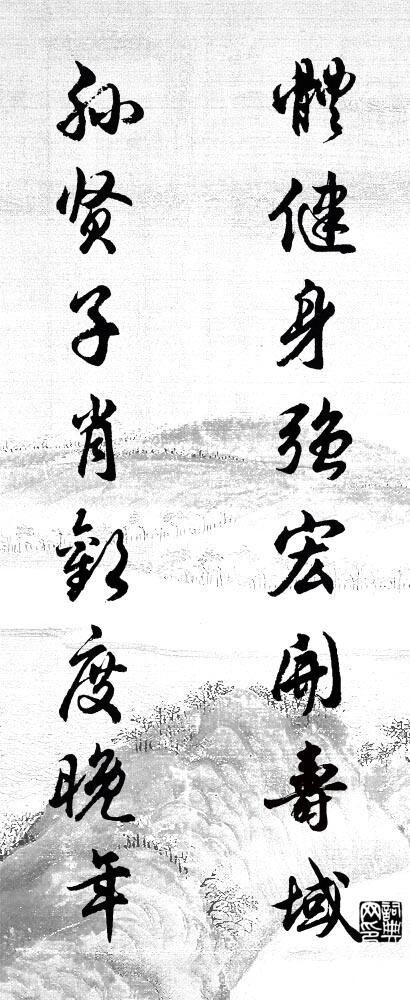 體健身强宏開壽域
孫賢子肖歡度晚年
詞典网印